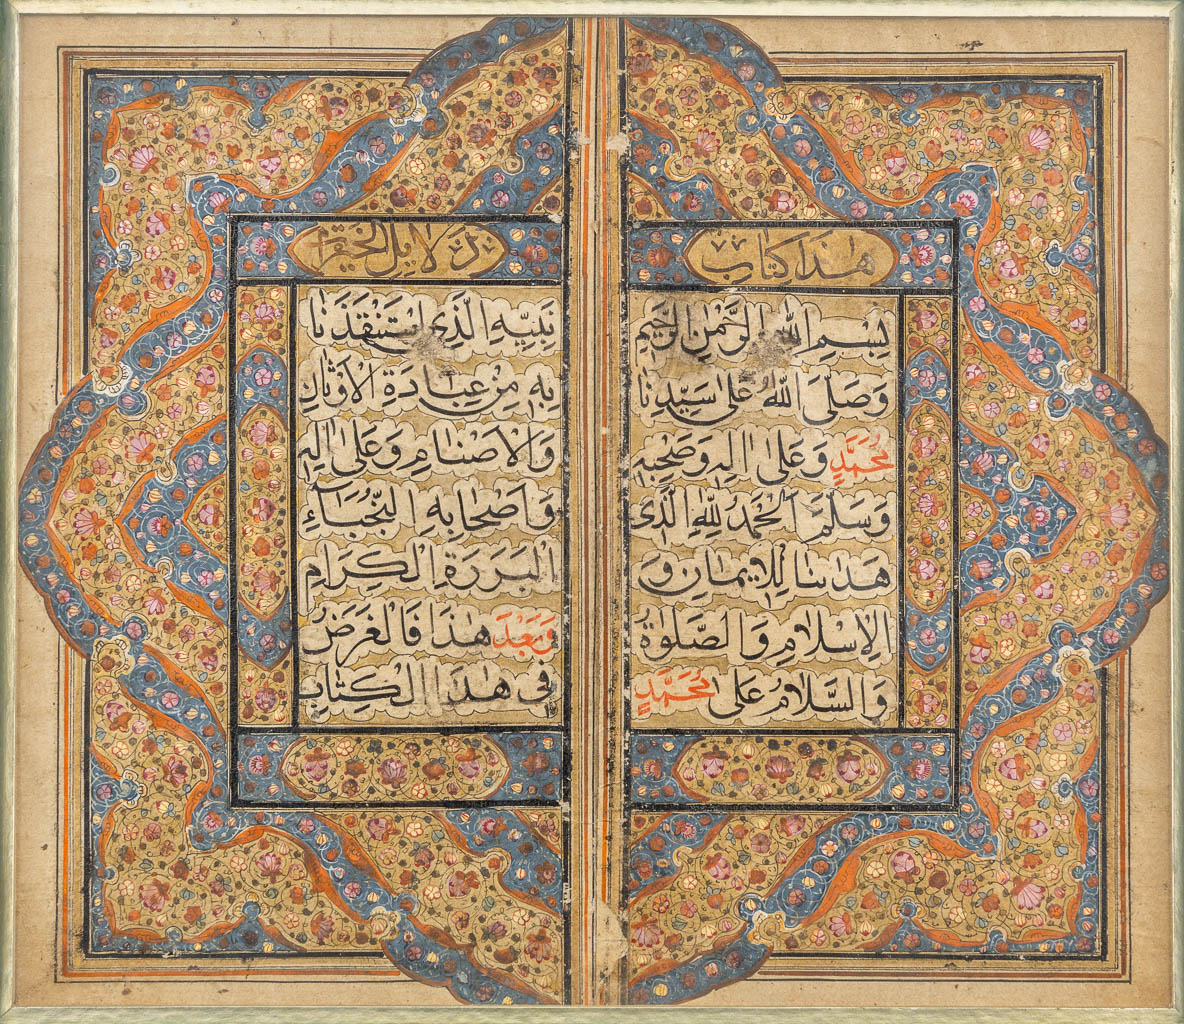 هذا كتاب
بِسْمِ اللّٰهِ الرَّحْمٰنِ الرَّحِيمِ
وَصَلَّى اللّٰهُ عَلٰى سَيِّدِنَا
مُحَمَّدٍ وَعَلٰى اٰلِهٖ وَصَحْبِهٖ
وَسَلَّمَ اَلْحَمْدُ لِلّٰهِ الَّذٖى
هَدٰىنَا لِلْاِيمَانِ وَ
الْاِسْلَامِ وَالصَّلٰوةُ
وَالسَّلَامُ عَلٰى مُحَمَّدٍ
دلايل الخيرا
نَبِيِّهِ الَّذِى اسْتَنْقَذَنَا
بِهٖ مِنْ عِبَادَةِ الْاَوْثَانِ
وَالْاَصْنَامِ وَعَلٰى اٰلِهٖ
وَاَصْحَابِهِ النُّجَبَاءِ
الْبَرَرَةِ الْكِرَامِ
وَبَعْدَ هٰذَا فَالْغَرَضُ
فِى هٰذَا الْكِتَابِ